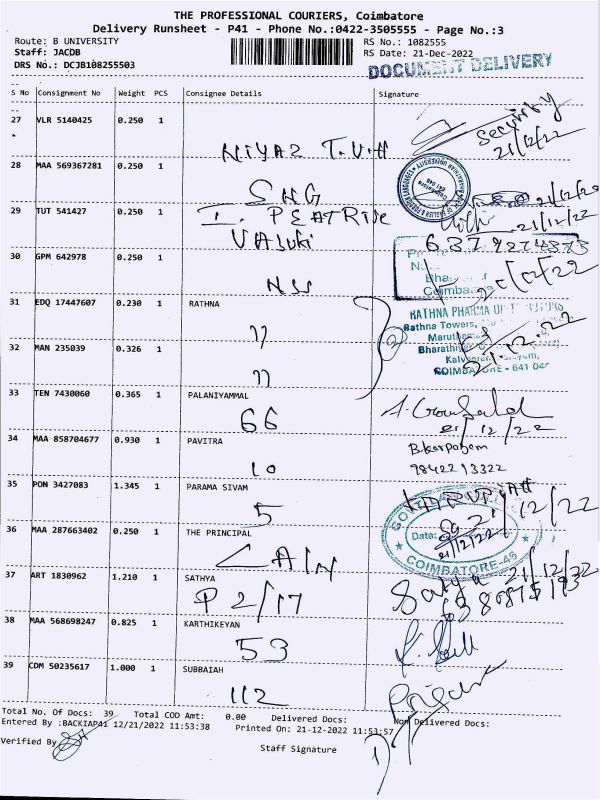 THE PROFESSIONAL COURIERS, Coimbatore
Delivery Runsheet - P41 - Phone No.:0422-3505555 - Page No.:3
Route: B UNIVERSITY RS No.: 1082555
Staff: JACDB RS Date: 21-Dec-2022
DRS No.: DCJB108255503
DOCUMENT DELIVERY
S No Consignment No Weight PCS Consignee Details Signature
27 VLR 5140425 0.250 1
Security
21/12/22
NIYAZ
28 MAA 569367281 0.250 1
SNG
21/12/22
29 TUT 541427 0.250 1
I. PEATRICE
21/12/22
VASUKI
6379274373
30 GPM 642978 0.250 1
Coimba
NSS
31 EDQ 17447607 0.230 1 RATHNA
RATHNA PHARMA
Rathna Towers,
11
Bharathi
21.12.22
COIMBATORE - 641 046
32 MAN 235039 0.326 1
11
33 TEN 7430060 0.365 1 PALANIYAMMAL
66
21/12/22
34 MAA 858704677 0.930 1 PAVITRA
B.karpagam
10
9842213322
35 PON 3427083 1.345 1 PARAMA SIVAM
5
21/12/22
36 MAA 287663402 0.250 1 THE PRINCIPAL
Date:
21/12/22
COIMBATORE-46
37 ART 1830962 1.210 1 SATHYA
P2/17
Satya 21/12/22
38 MAA 568698247 0.825 1 KARTHIKEYAN
53
39 CDM 50235617 1.000 1 SUBBAIAH
112
Total No. Of Docs: 39 Total COD Amt: 0.00 Delivered Docs: Non Delivered Docs:
Entered By :BACKIAP41 12/21/2022 11:53:38 Printed On: 21-12-2022 11:53:57
Verified By
Staff Signature